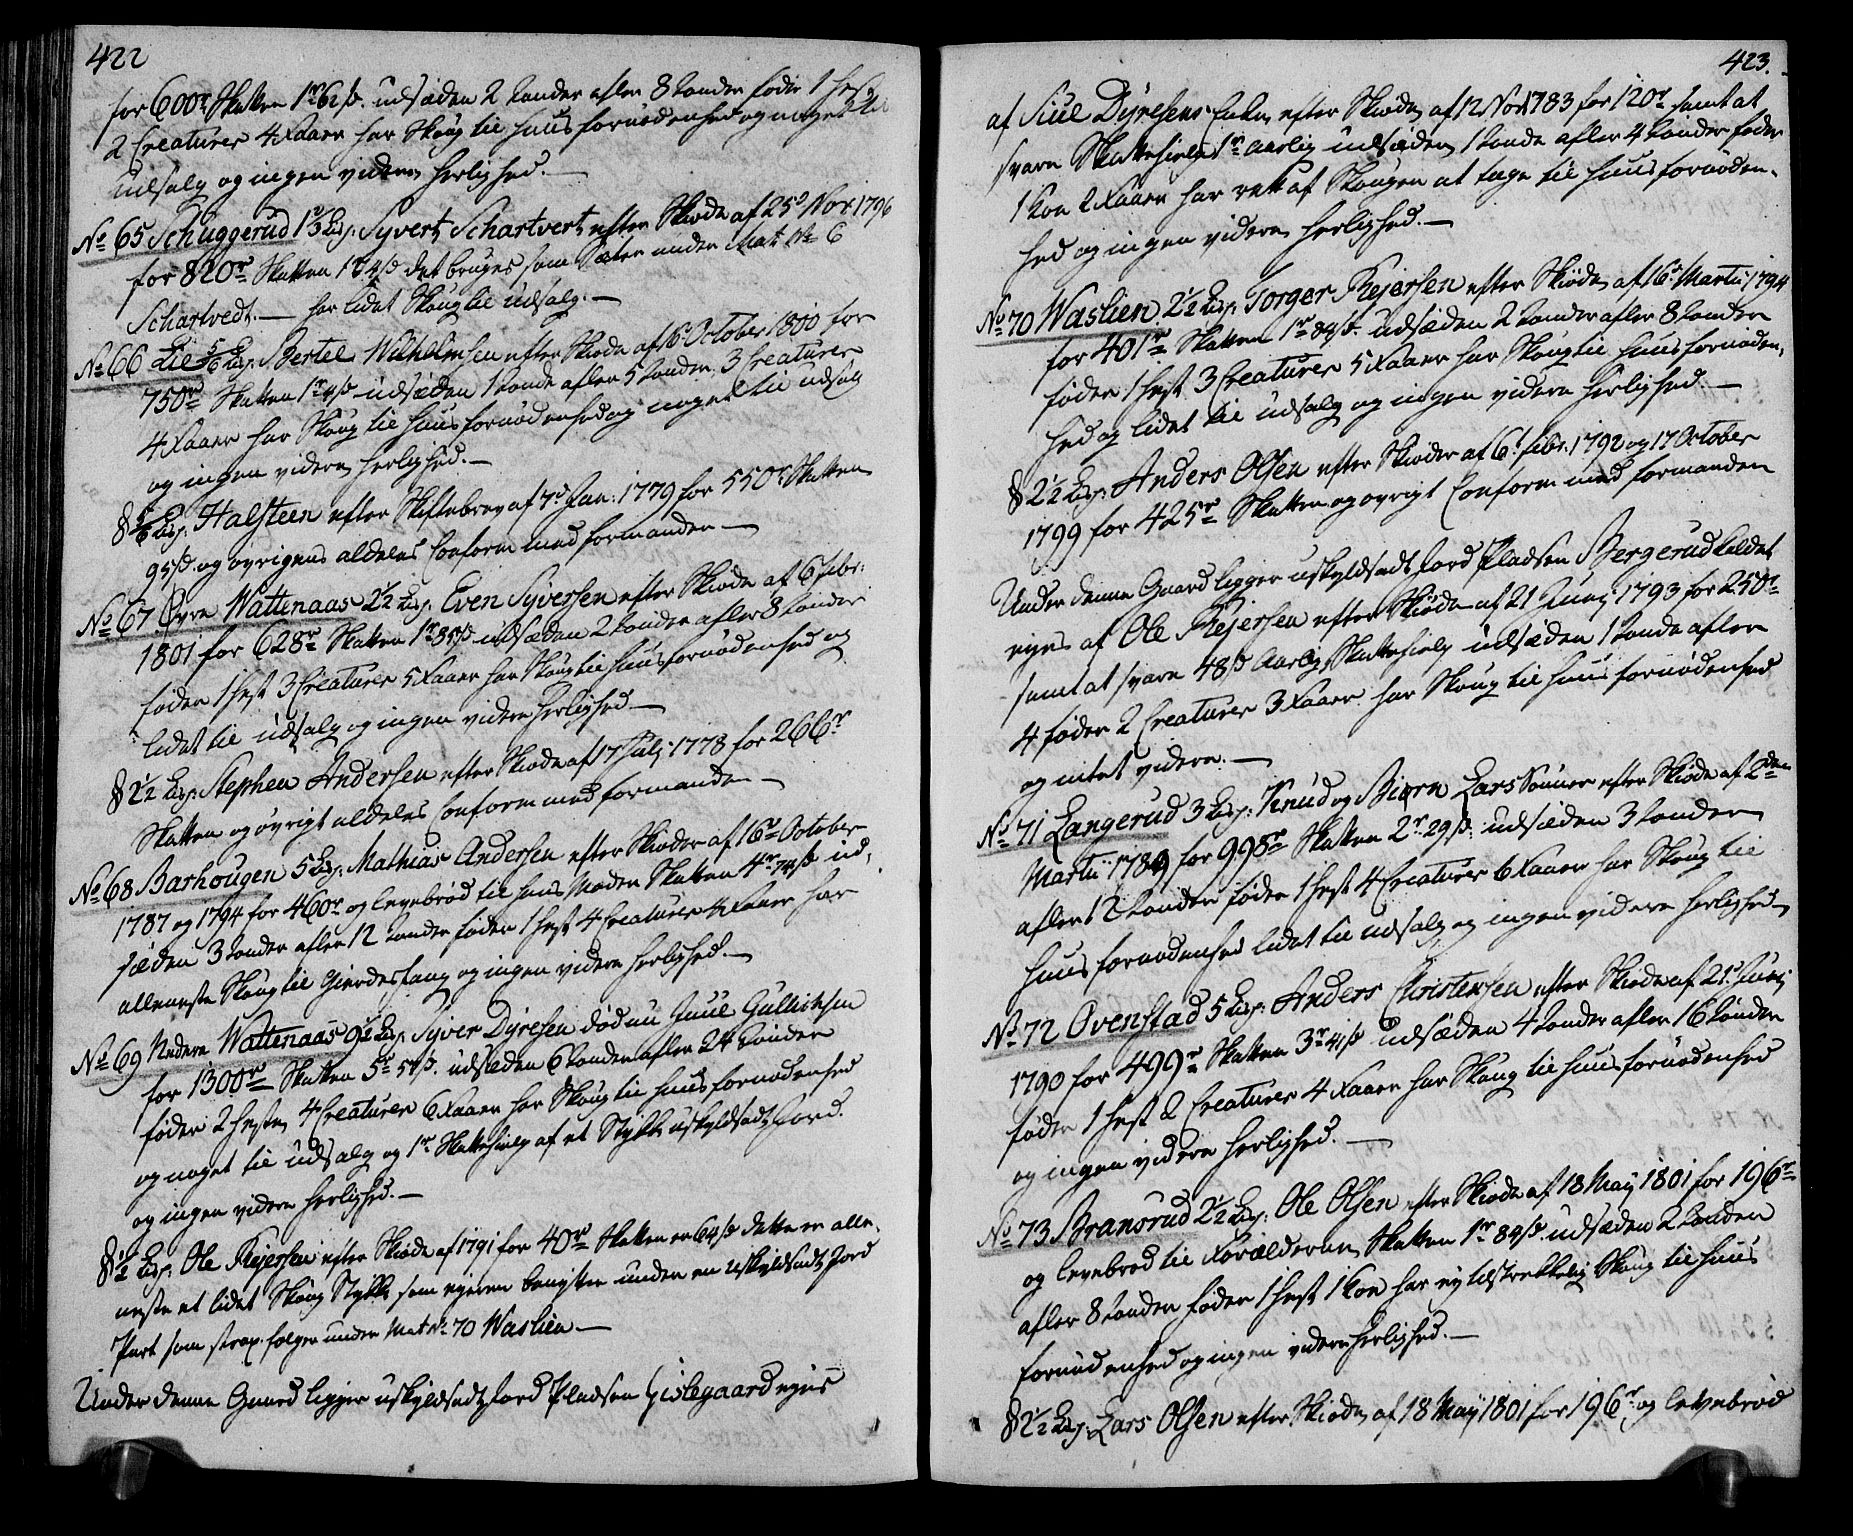 422
for 600r Skatten 1r 62 s. udsæden 2 tønder afler 8 tønder føder 1 Hest
2 Creaturer 4 Faaer har Skoug til Huusfornødenhed og noget til
udsalg og ingen videre herlighed.—
No 65 Schuggerud 1½ Lisp. Syvert Schartvert efter Skiøde af 25d Novr 1796
for 820r Skatten 1r 4 s det bruges som Sæter under Mat. No 6
Schartvedt.— har lidet Skoug til udsalg.—
No 66 Lie 5/6 Lisp. Bertel Wilhelmsen efter Skiøde af 6 October 1800 for
750r Skatten 1r 4 s udsæden 1 tønde afler 5 tønder. 3 Creaturer
4 Faaer har Skoug til Huusfornødenhed og noget til udsalg
og ingen videre herlighed.—
§ 5/6 Lisp. Halsteen efter Skiftebrev af 7d Jan: 1779 for 550r Skatten
95 s og øvrigens aldeles Conform med formanden—
No 67. Øvre Wattenaas 2½ Lisp. Even Syversen efter Skiøde af 6 febr:
1801 for 628r Skatten 1r 84 s udsæden 2 tønder afler 8 tønder
føder 1 Hest 3 Creaturer 5 Faaer har Skoug til Huusfornødenhed og
lidet til udsalg og ingen videre herlighed.—
§ 2½ Lisp. Stephen Andersen efter Skiøde af 17 Julj 1778 for 266r
Skatten og øvrigt aldeles Conform med formanden—
No 68. Barhougen 5 Lisp. Mathias Andersen efter Skiøder af 16d October
1787 og 1794 for 460r og levebrød til hans Moder Skatten 4r 74 s ud-
sæden 3 tønder afler 12 tønder føder 1 Hest 4 Creaturer 4 Faaer har
alleneste Skoug til Gierdesfang og ingen videre herlighed.—
No 69 Nedere Wattenaas 9½ Lisp. Syver Dyresen død nu Juul Gullichsen
for 1300r Skatten 5r 57 s. udsæden 6 tønder afler 24 tønder
føder 2 Heste 4 Creaturer 6 Faaer har Skoug til Huusfornødenhed
og noget til udsalg og 1r Skattehielp af et Stykke uskyldsadt Jord.
og ingen videre herlighed.—
§ ½ Lisp. Ole Rejersen efter Skiøde af 1791 for 40r Skatten er 64 s dette er alle-
neste et lidet Skoug Stykke som ejeren benytter under en uskyldsadt Jord
Part som strax følger under Mat No 70 Waslien.—
Under denne Gaard ligger uskyldsadt Jord Pladsen Gislegaard ejes
423.
af Siul Dyresens Enke efter Skiøde af 12 Nov 1783 for 120r samt at
svare Skattehielp 1r aarlig udsæden 1 tønde afler 4 tønder føder
1 Koe 2 Faaer har rett af Skougen at tage til Huusfornøden-
hed og ingen videre herlighed.—
No 70 Waslien 2½ Lisp. Torger Rejersen efter Skiøde af 16d Martii 1794
for 401r Skatten 1r 84 s. udsæden 2 tønder afler 8 tønder
føder 1 Hest 3 Creaturer 5 Faaer har Skoug til Huusfornøden-
hed og lidet til udsalg og ingen videre herlighed.—
§ 2½ Lisp. Anders Olsen efter Skiøder af 6d febr. 1792 og 17 October
1799 for 425r Skatten og øvrigt Conform med formanden
Under denne Gaard ligger uskyldsadt Jord Pladsen Bergerud kaldet
ejes af Ole Rejersen efter Skiøde af 21 Junj 1793 for 250r
samt at svare 48 s Aarlig Skattehielp udsæden 1 tønde afler
4 føder 2 Creaturer 3 Faaer. har Skoug til Huusfornødenhed
og intet videre.—
No 71 Langerud 3 Lisp. Knud og Biørn Lars Sønner efter Skiøde af 2den
Martii 1789 for 995r Skatten 2r 29 s. udsæden 3 tønder
afler 12 tønder føder 1 Hest 4 Creaturer 6 Faaer har Skoug til
Huusfornødenhed lidet til udsalg og ingen videre herlighed
No 72 Ovenstad 5 Lisp. Anders Christensen efter Skiøde af 21d Junj
1790 for 499r Skatten 3r 41 s udsæden 4 tønder afler 16 tønder
føder 1 Hest 2 Creaturer 4 Faaer har Skoug til Huusfornødenhed
og ingen videre herlighed.—
No 73. Bransrud 2½ Lisp. Ole Olsen efter Skiøde af 18 May 1801 for 196r
og levebrød til Forælderne Skatten 1r 84 s. udsæden 2 tønder
afler 8 tønder føder 1 Hest 1 Koe har ey tilstrekkelig Skoug til Huus
fornødenhed og ingen videre herlighed.—
§ 2½ Lisp. Lars Olsen efter Skiøde af 18 May 1801 for 196r og levebrød